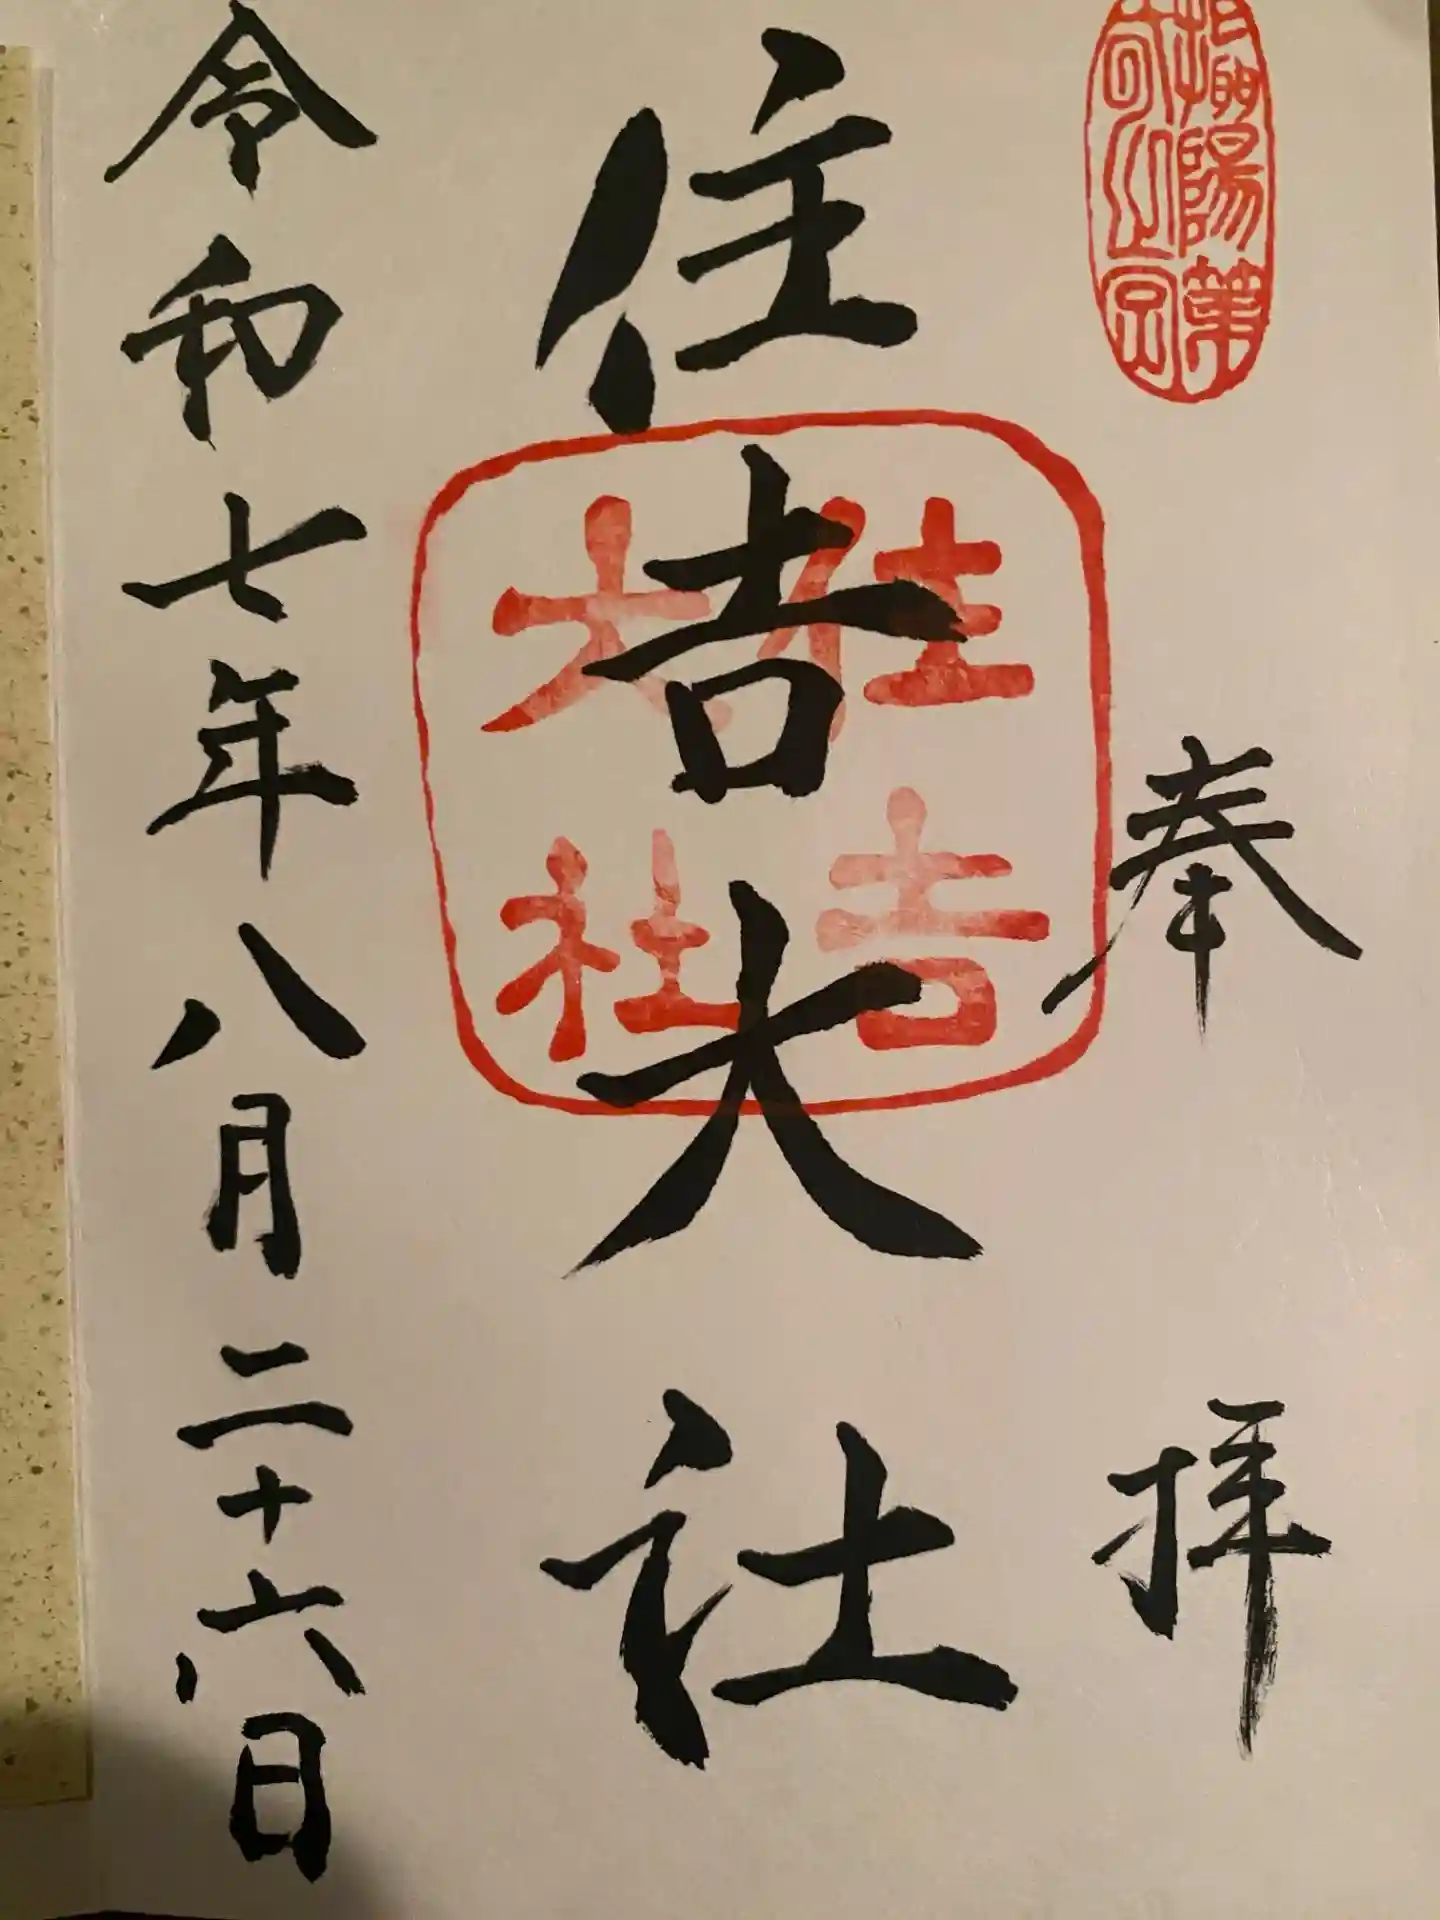 陽第
奉拝
住吉大社
住吉
大社
令和七年八月二十六日